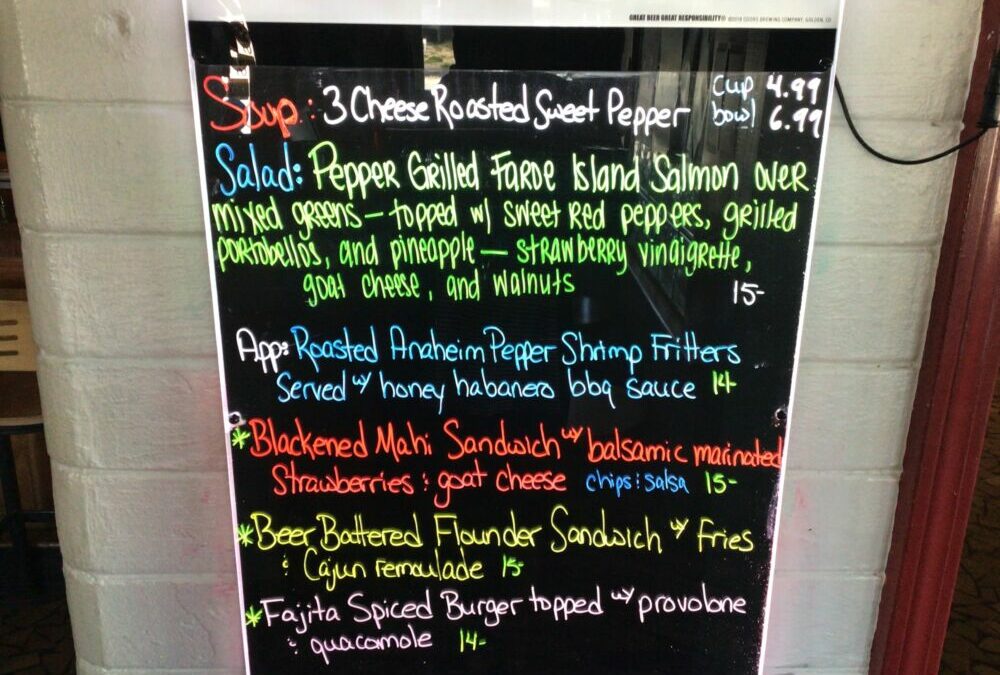 GREAT BEER GREAT RESPONSIBILITY® ©2018 COORS BREWING COMPANY, GOLDEN, CO
Soup: 3 Cheese Roasted Sweet Pepper cup 4.99
bowl 6.99
Salad: Pepper Grilled Faroe Island Salmon over
mixed greens — topped w/ sweet red peppers, grilled
portobellos, and pineapple — strawberry vinaigrette,
goat cheese, and walnuts 15-
App: Roasted Anaheim Pepper Shrimp Fritters
Served w/ honey habanero bbq sauce 14-
*Blackened Mahi Sandwich w/ balsamic marinated
Strawberries & goat cheese chips & salsa 15-
*Beer Battered Flounder Sandwich w/ Fries
& Cajun remoulade 15-
*Fajita Spiced Burger topped w/ provolone
& guacamole 14-